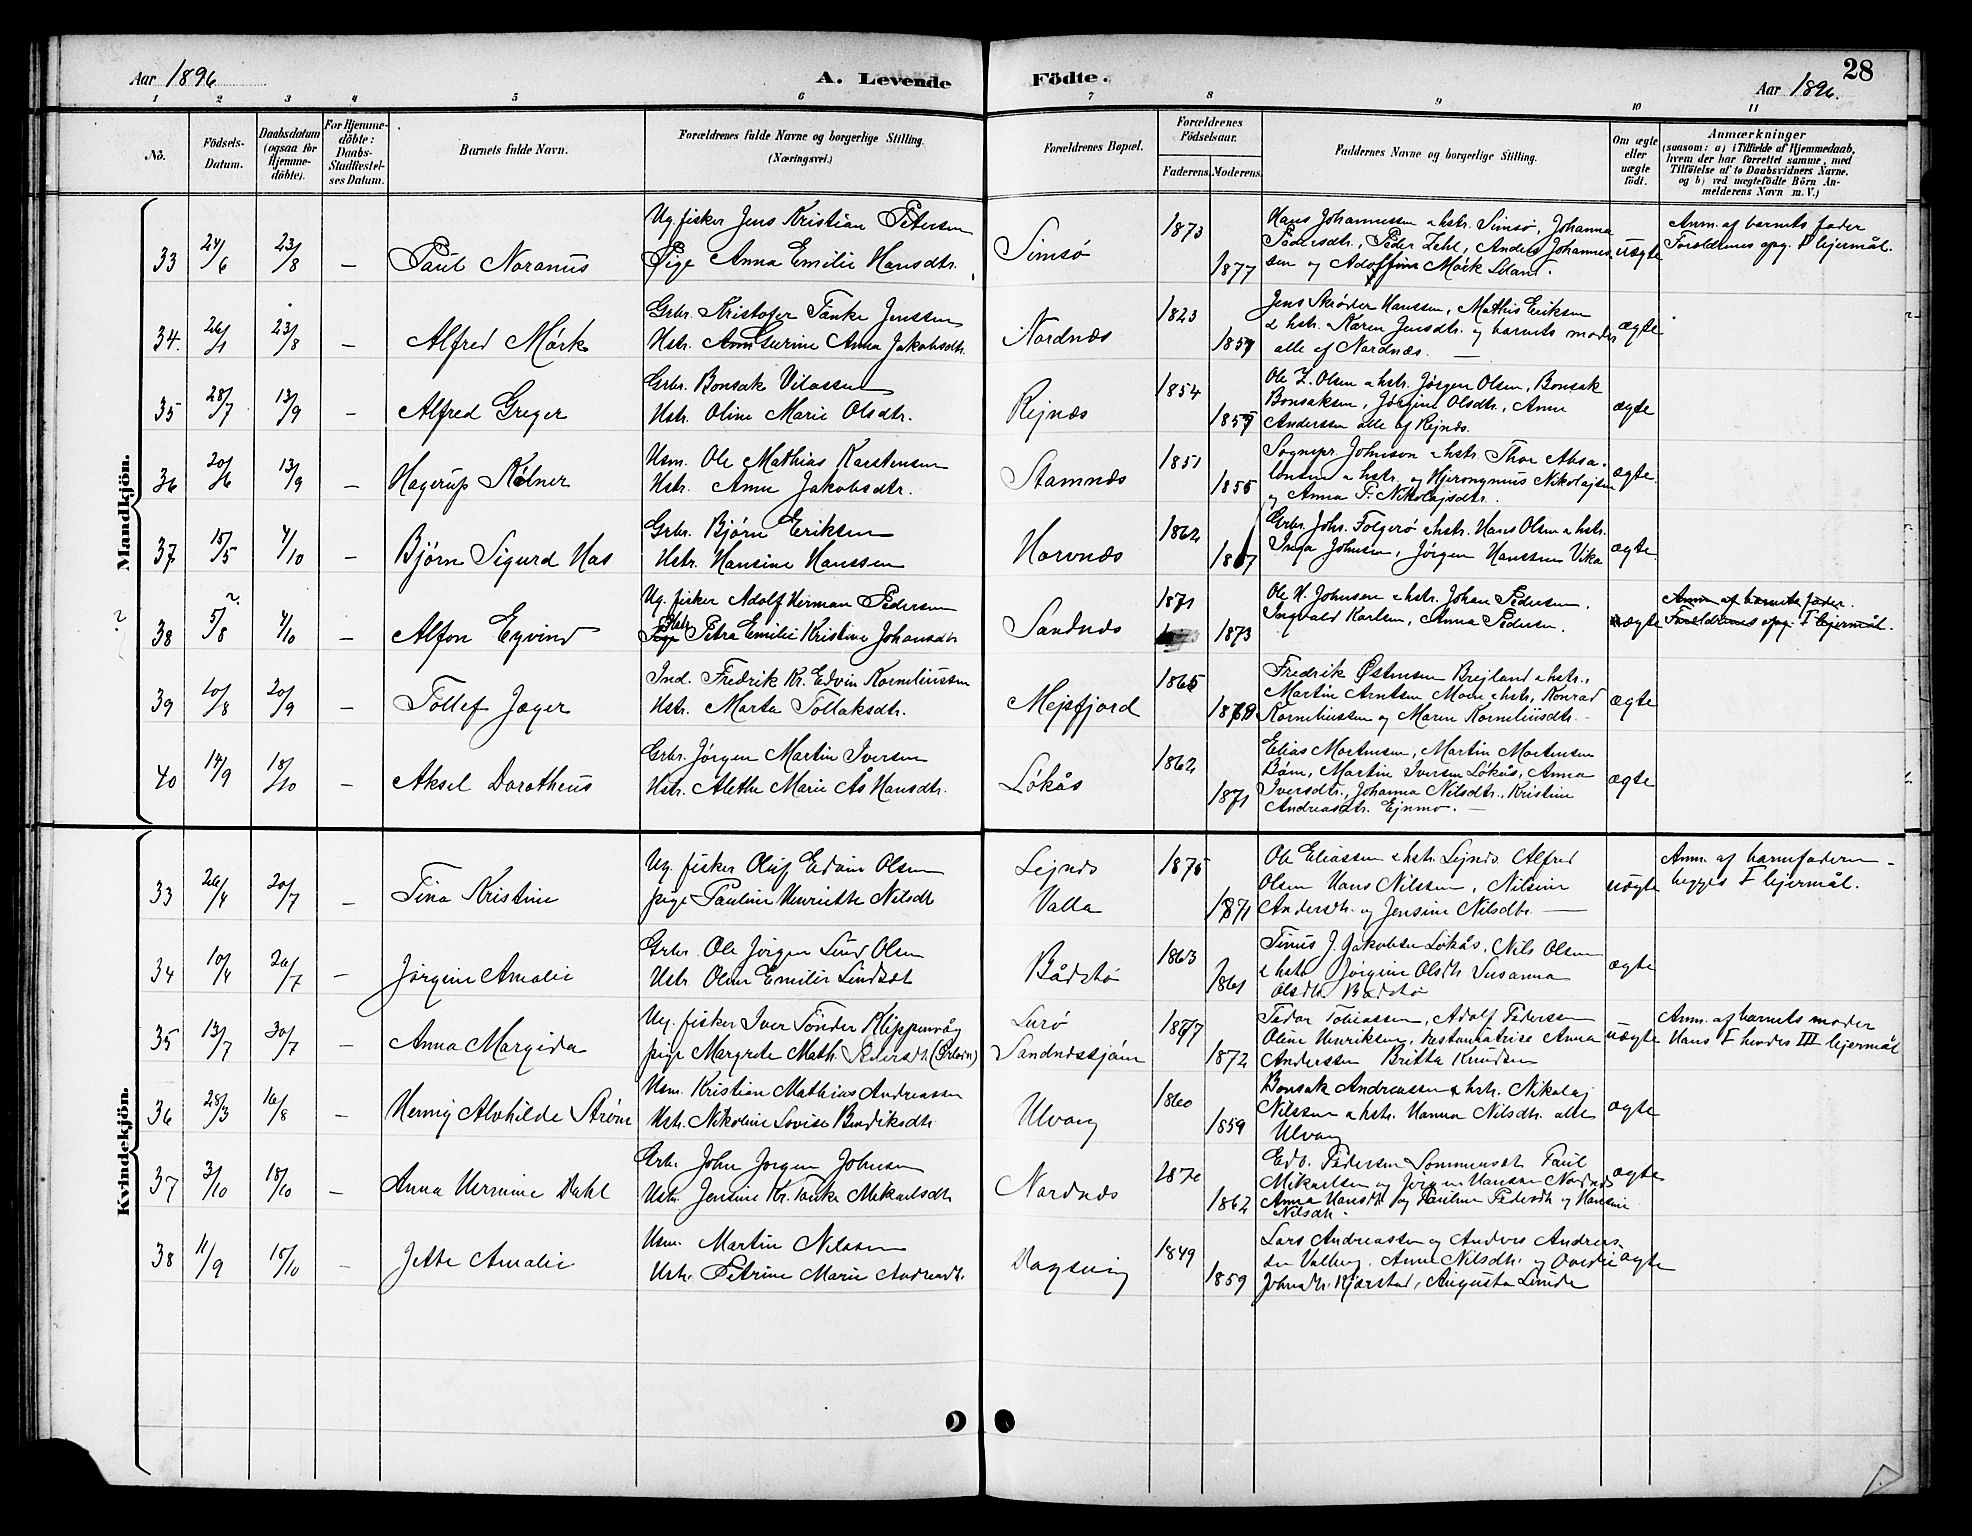 Aar 1896
A. Levende Födte.
28
Aar 1896.
1 2 3 4 5 6 7 8 9 10 11
No.
Födsels-Datum.
Daabsdatum (ogsaa for Hjemme-döbte).
For Hjemme-döbte: Daabs-Stadfæstel-ses Datum.
Barnets fulde Navn.
Forældrenes fulde Navne og borgerlige Stilling. (Næringsvei.)
Forældrenes Bopæl.
Forældrenes Födselsaar.
Faderens. Moderens.
Faddernes Navne og borgerlige Stilling.
Om ægte eller uægte födt.
Anmærkninger
(saasom: a) i Tilfælde af Hjemmedaab,
hvem der har forrettet samme, med
Tilföielse af to Daabsvidners Navne.
og b) ved uægtefödte Börn An-
melderens Navn m. V.)
Mandkjön.
33 24/6 23/8 — Paul Noranus
Ug. fisker Jens Kristian Petersen
Pige Anna Emilie Hansdtr.
Simsø
1873
1877
Hans Johannessen & hstr. Simsø, Johanna
Pedersdtr., Peder Zehl, Anders Johannes-
sen og Adolfine Mörk
uægte
Anm. af barnets fader
Foreldrenes opg. I lejermål.
34. 26/1 23/8 — Alfred Mörk
Grbr. Kristofer Tanke Jenssen
Hstr. Anna Jakobsdtr.
Nordnæs
1823
1859
Jens Skrøder Hanssen, Mathis Eriksen
& hstr. Karen Jensdtr. og barnets moder
alle af Nordnæs. —
ægte
35 28/7 13/9 — Alfred Greger
Grbr. Bonsak Vilassen
Hstr. Oline Marie Olsdtr.
Rejnæs
1854
1859
Ole Z. Olsen & hstr. Jörgen Olsen, Bonsak
Bonsaksen, Jörgine Olsdtr., Anne
Anderssen alle af Rejnæs.
ægte
36 20/6 13/9 — Hagerup Kölner
Usm. Ole Mathias Karstensen
Hstr. Anne Jakobsdtr.
Stamnæs
1851
1855
Sognepr Johnson & hstr. Thor Absa-
lonsen & hstr. og Hjeronymus Nikolajsen
og Anna P. Nikolajsdtr.
ægte.
37. 15/5 4/10 — Bjørn Sigurd Has
Grbr. Bjørn Eriksen
Hstr. Hansine Hanssen
Horvnæs
1862
1867
Grbr. Johs. Folgerø & hstr. Hans Olsen & hstr.
Inga Johnsen, Jørgen Hanssen Vika
ægte
?
38 5/8 ? 4/10 — Alfon Eyvind
Ug. fisker Adolf Herman Pedersen
Pige Petra Emilie Kristine Johansdtr
Sandnæs
1871
1873
Ole H. Johnsen & hstr. Johan Pedersen.
Ingvald Karlsen, Anna Pedersen.
ægte
Anm af barnets fader.
Foreldrenes opg. I lejermål.
39 10/8 20/9 — Tollef Jæger
Ind. Fredrik Kr. Edvin Korneliussen
Hstr. Marta Tollaksdtr.
Mejsfjord
1865
1879
Fredrik Østensen Brejland & hstr.,
Martin Arntsen Moen & hstr., Konrad
Korneliussen og Maren Korneliusdtr. —
ægte
40 14/9 18/10 — Aksel Dorotheus
Grbr. Jörgen Martin Iversen
Hstr. Alethe Marie Ås Hansdtr.
Lökås
1862
1871
Elias Mortensen, Martin Mortensen
Bøm, Martin Iversen Lökås, Anna
Iversdtr., Johanna Nilsdtr., Kristine
Andreasdtr. Ejnmo. —
ægte
Kvindekjön.
33 26/4 20/7 — Tina Kristine
Ug. fisker Oluf Edvin Olsen
pige Pauline Henriette Nilsdtr
Lejnæs
Valla
1875
1871
Ole Eliassen & hstr. Lejnæs Alfred
Olsen Hans Nilssen, Nilsine
Andersdtr. og Jensine Nilsdtr. —
uægte
Anm. af barnefaderen —
begges I lejermål.
34 10/4 26/7 — Jørgine Amalie
Grbr. Ole Jörgen Lund Olsen
Hstr. Oline Emilie
Bådstø
1863
1861
Tinus J. Jakobsen Lökås. Nils Olsen
& hstr. Jørgine Olsdtr Susanna
Olsdtr Bådstø
ægte
35 13/7 30/7 — Anna Margida
Ug. fisker Iver Tönder Klippenvåg
pige Margrete Math. Pedersdtr.
Lurö
Sandnessjøen
1877
1872
Peder Tobiassen, Adolf Pedersen
Oline Henriksen, restauratrise Anna
Anderssen Britta Knudsen
uægte
Anm. af barnets moder
Hans I hendes III lejermål
36 28/3 16/8 — Henny Alvhilde Strøm
Usm. Kristian Mathias Andreassen
Hstr. Nikoline Lovise Bendiksdtr
Ulvang
1860
1859
Bonsak Andreassen & hstr. Nikolaj
Nilssen & hstr. Hanna Nilsdtr. alle
Ulvang
ægte
37 3/10 18/10 — Anna Hermine Dahl
Grbr. John Jørgen Johnsen
Hstr. Jensine Kr. Tanke Mikaelsdtr
Nordnæs
1870
1862
Edv. Pedersen Paul
Mikaelsen og Jörgen Hanssen Nordnæs
Anna Hansdtr og Pauline Pedersdtr og Hansine
Nilsdtr.
ægte
38 11/9 18/10 — Jette Amalie
Usm. Martin Nilssen
Hstr. Petrine Marie Andreasdtr.
1849
1859
Lars Andreassen og Anders Andreas-
sen Anne Nilsdtr. og
Johnsdtr. Kjærstad, Augusta Lunde
ægte